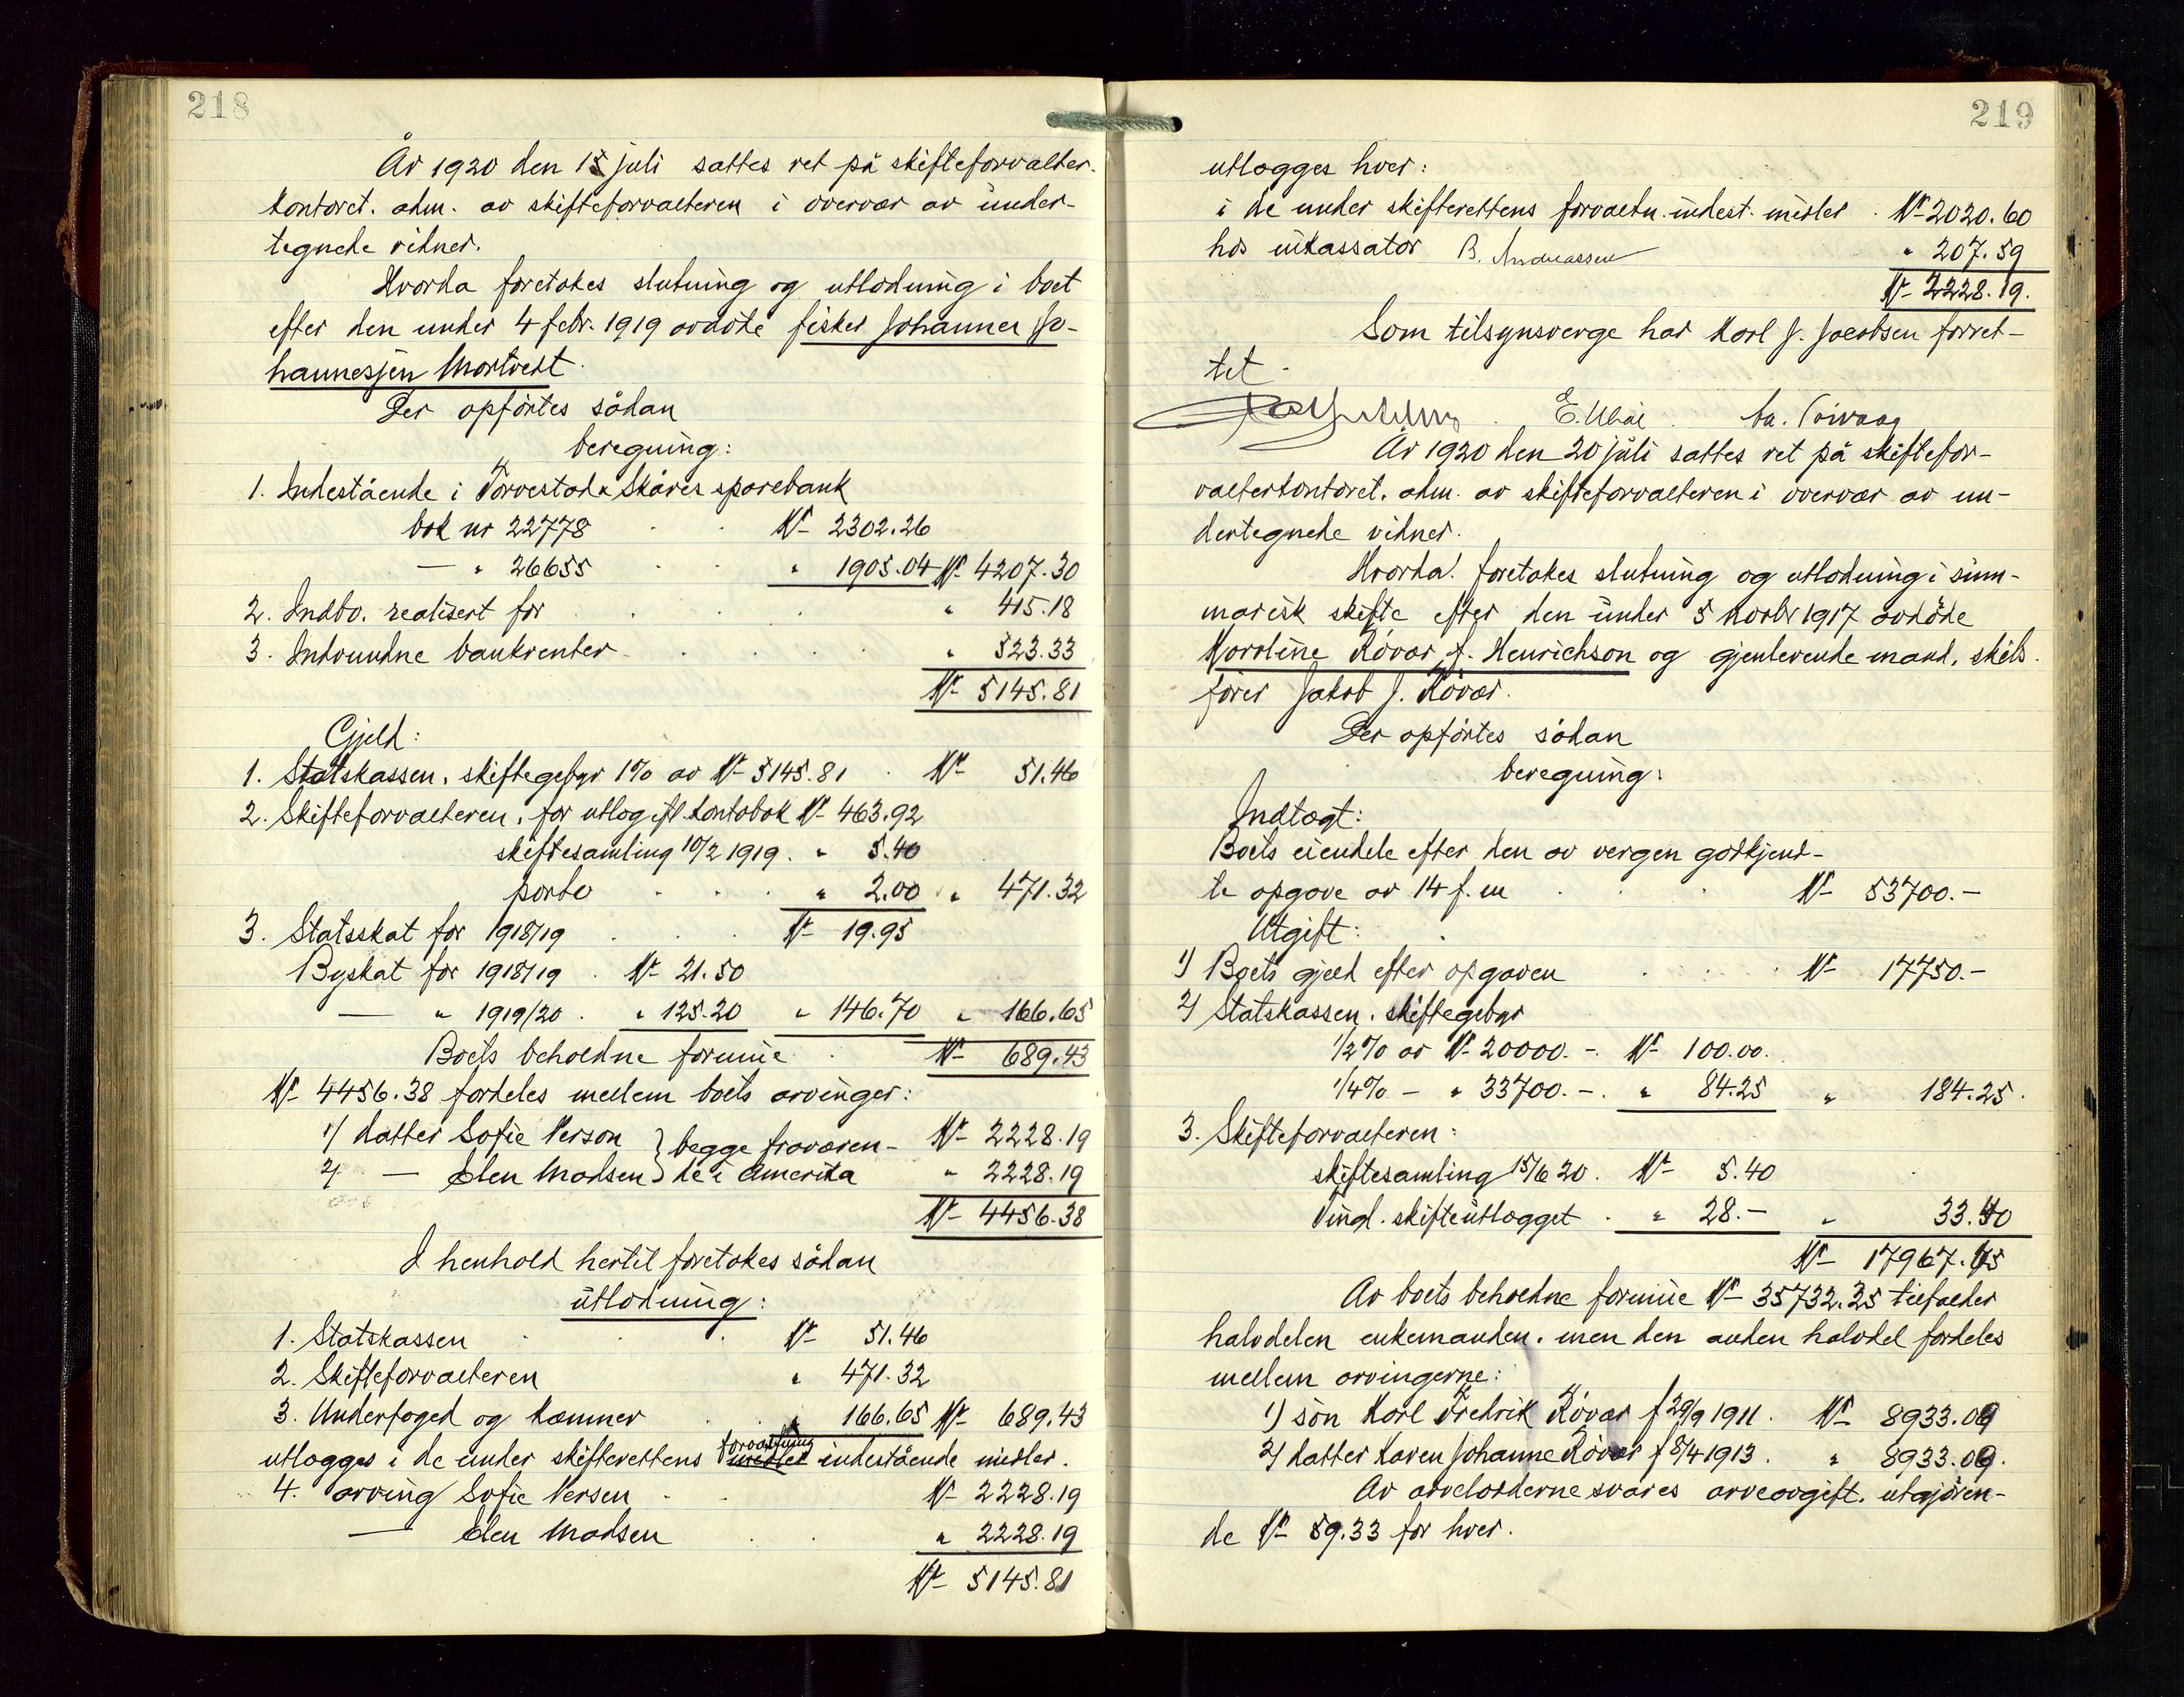 218
År 1920 den 15 juli sattes ret på skifteforvalter-
kontoret. adm. av skifteforvalteren i overvær av under-
tegnede vidner.
Hvorda foretokes slutning og utlodning i boet
efter den under 4 febr. 1919 avdöde fisker Johannes Jo-
hannesjen Mortvedt.
Der opförtes sådan
beregning:
1. Indestående i Torvestad & Skåres sparebank
bok nr 22778 . . Kr 2302.26
— " 26655 . . " 1905.04 Kr 4207.30
2. Indbo. realisert for . . . " 415.18
3. Indvundne bankrenter . . . . " 523.33
Kr 5145.81
Gjeld:
1. Statskassen, skiftegebyr 1% av Kr 5145.81 . Kr 51.46
2. Skifteforvalteren, for utlæg efl. kontobok Kr 463.92
skiftesamling 10/2 1919. " 5.40
porto . . . " 2.00 " 471.32
3. Statsskat for 1918/19 . . . Kr 19.95
Byskat for 1918/19 . Kr 21.50
— " 1919/20 . " 125.20 " 146.70 " 166.65
Boets beholdne formue . Kr 689.43
Kr 4456.38 fordeles mellem boets arvinger:
1) datter Sofie Verson } begge fraværen- Kr 2228.19
2) — Elen Madsen } de i Amerika " 2228.19
Kr 4456.38
I henhold hertil foretokes sådan
utlodning:
1. Statskassen . . . Kr 51.46
2. Skifteforvalteren " 471.32
3. Underfoged og kæmner . . " 166.65 Kr 689.43
utlægges i de under skifterettens forvaltning indestående midler.
4. arving Sofie Versen . . Kr 2228.19
— Elen Madsen . . " 2228.19
Kr 5145.81
219
utlægges hver:
i de under skifterettens forvaltn. indest. midler . Kr 2020.60
hos inkassator B. Andreassen " 207.59
Kr 2228.19.
Som tilsynsverge har Karl J. Jacobsen forret-
tet.
År 1920 den 20 juli sattes ret på skiftefor-
valterkontoret. adm. av skifteforvalteren i overvær av un-
dertegnede vidner.
Hvorda: foretokes slutning og utlodning i sum-
marisk skifte efter den under 5 novbr 1917 avdöde
Noroline Rövær f. Henrichson og gjenlevende mand, skibs.
förer Jakob J. Rövær.
Der opförtes sådan
beregning:
Indtægt:
Boets eiendele efter den av vergen godkjend-
te opgave av 14 f. m . . . Kr 53700.-
Utgift:
1) Boets gjeld efter opgaven . . . . Kr 17750.-
2) Statskassen. skiftegebyr
1/2% av Kr 20000.-. Kr 100.00.
1/4% - " 33700.-. " 84.25 " 184.25.
3. Skifteforvalteren:
skiftesamling 15/6 20. Kr 5.40
Tingl. skifteutlægget . " 28.- " 33.40
Kr 17967.75
Av boets beholdne formue Kr 35732.35 tilfalder
halvdelen enkemanden. men den anden halvdel fordeles
mellem arvingerne:
1) sön Karl Fredrik Rövær f 29/9 1911. Kr 8933.09
2) datter Karen Johanne Rövær f 8/4 1913. " 8933.09.
Av arvelodderne svares arveavgift. utgjören-
de Kr 89.33 for hver.